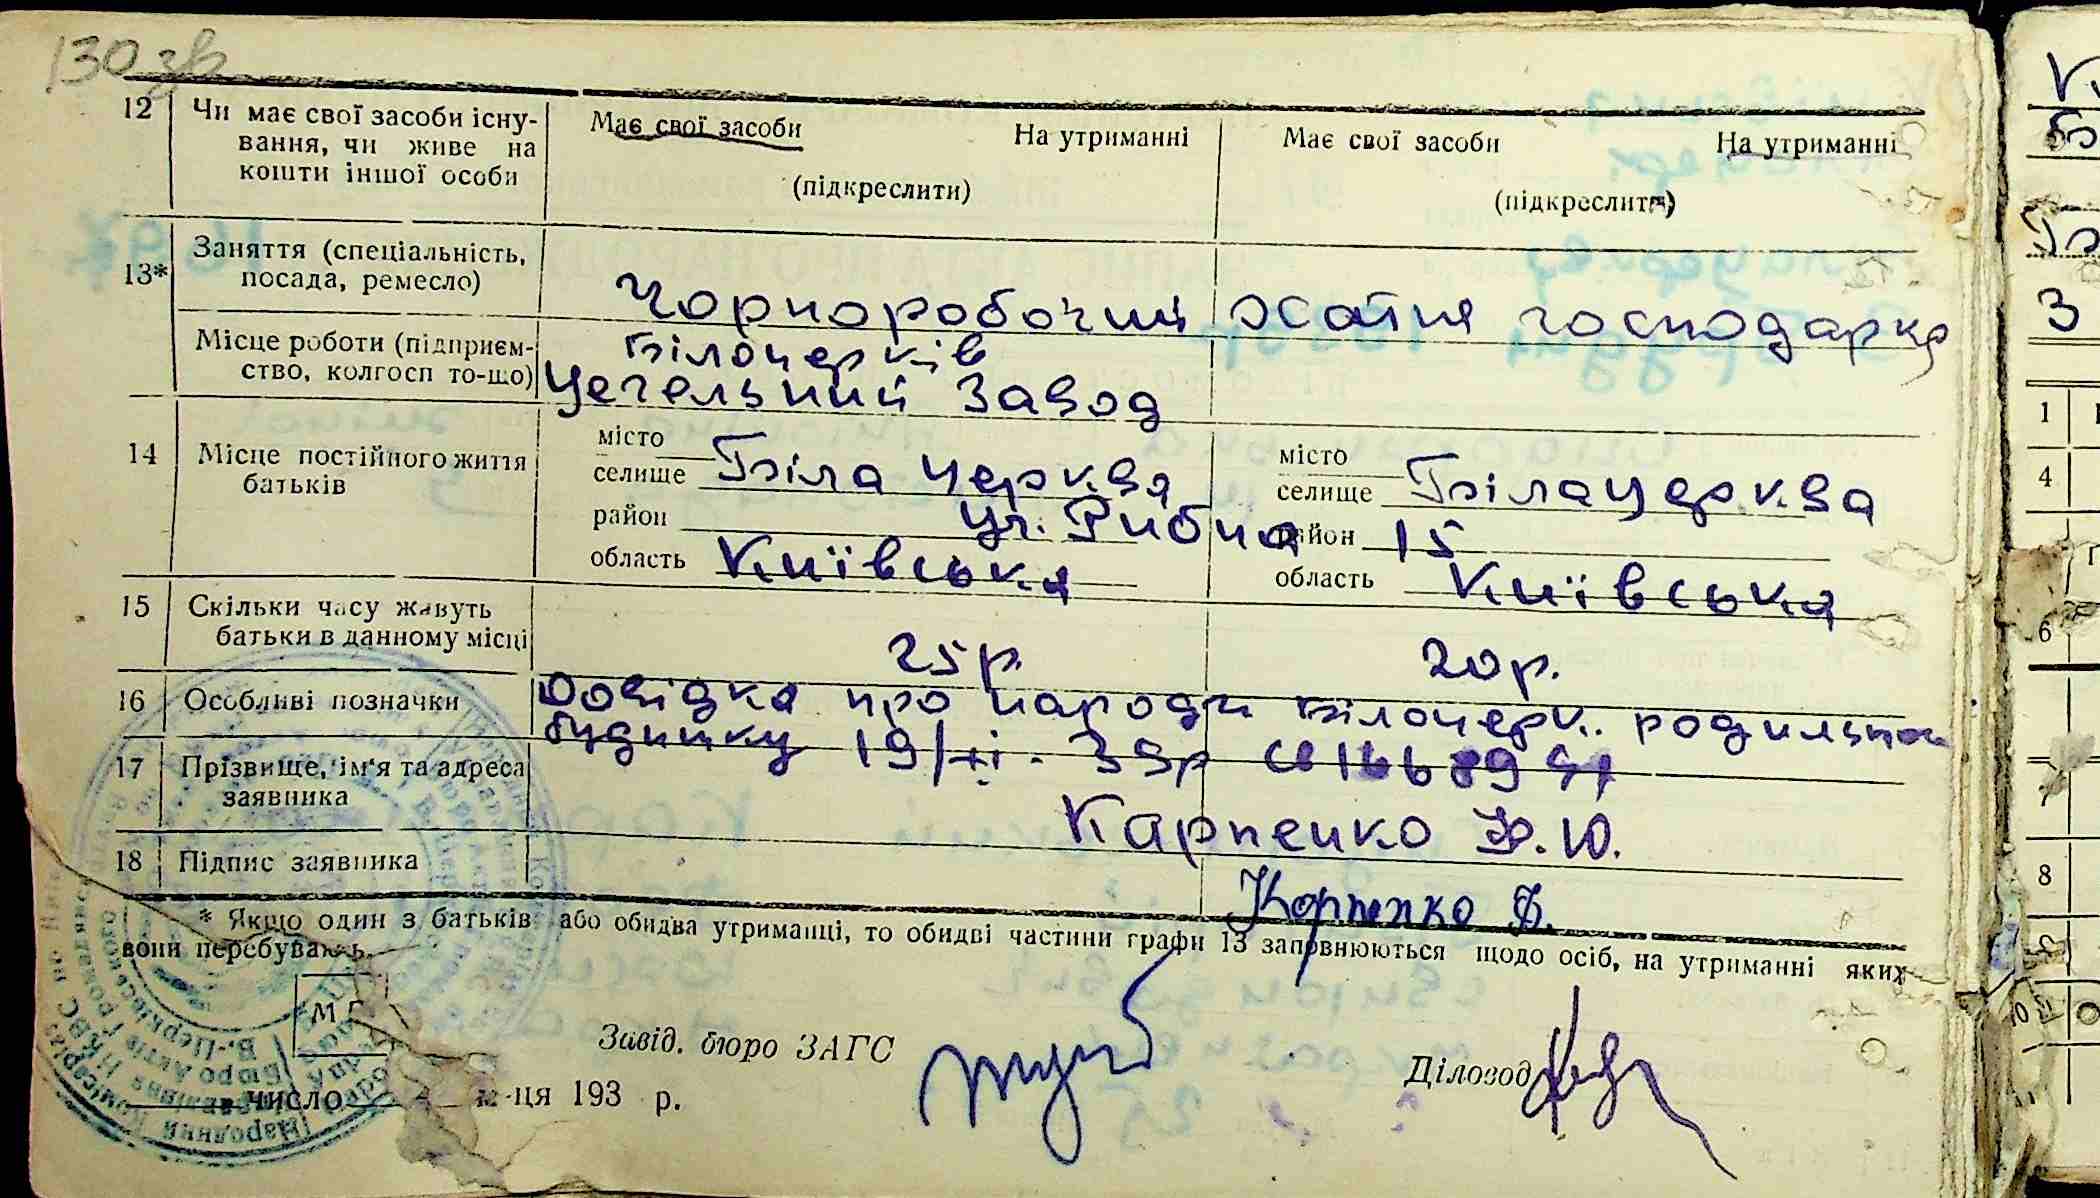 130 зв
12 Чи має свої засоби існу-
вання, чи живе на
кошти іншої особи
Має свої засоби На утриманні
(підкреслити)
Має свої засоби На утриманні
(підкреслити)
13* Заняття (спеціальність,
посада, ремесло)
Чорноробочий
Хатня господарка
Місце роботи (підприєм-
ство, колгосп то-що)
Білоцерків
Цегельний завод
14 Місце постійного життя
батьків
місто
селище Біла Церква
район
область Київська
місто
селище Біла Церква
район
область Київська
ул. Рибна 15
15 Скільки часу живуть
батьки в данному місці
25р.
20р.
16 Особливі позначки
Довідка про народж Білоцерк. родильного
будинку 19/XI - 39р
17 Прізвище, ім'я та адреса
заявника
Карпенко Ф.Ю.
18 Підпис заявника
Карпенко Ф.
* Якщо один з батьків або обидва утриманці, то обидві частини графи 13 заповнюються щодо осіб, на утриманні яких
вони перебувають.
М
Завід. бюро ЗАГС
Діловод
число ця 193 р.
К
Б
З
1
4
6
7
8